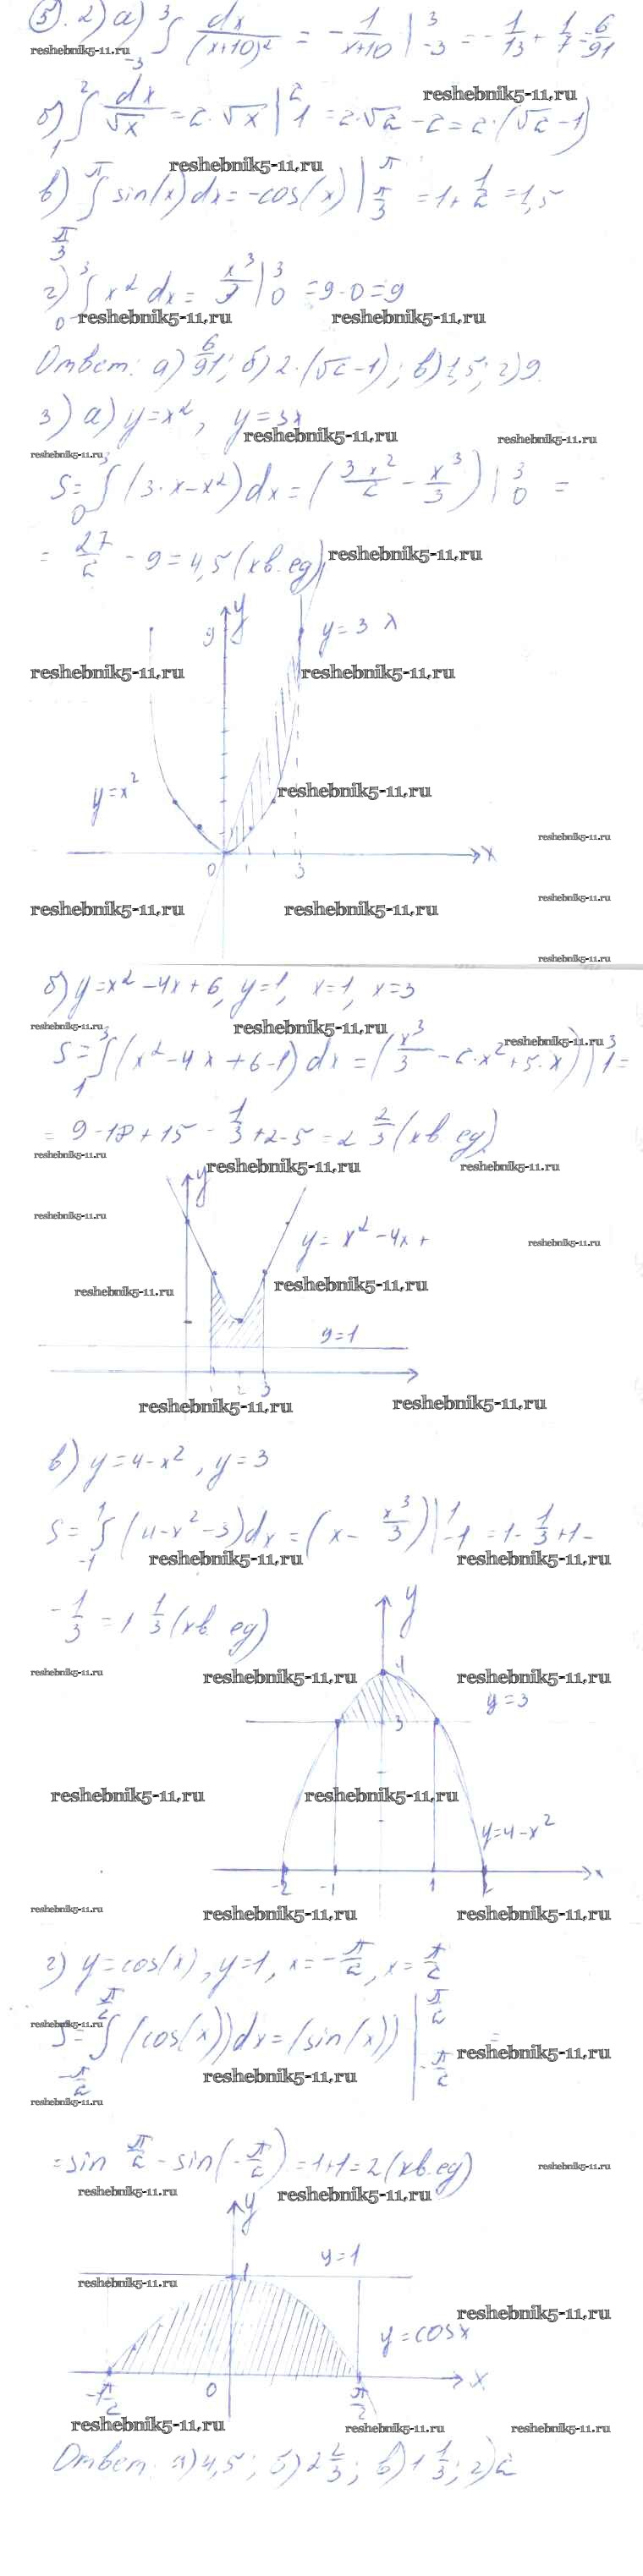 5. 2) а) ∫₋₃³ dx/(x+10)² = -1/(x+10) |₋₃³ = -1/13 + 1/7 = 6/91
reshebnik5-11.ru
reshebnik5-11.ru
б) ∫₁² dx/√x = 2·√x |₁² = 2·√2 - 2 = 2·(√2-1)
reshebnik5-11.ru
в) ∫ sin(x)dx = -cos(x) | = 1+1/2 = 1,5
π/3 π π/3 π
г) ∫₀³ x² dx = x³/3 |₀³ = 9-0 = 9
reshebnik5-11.ru reshebnik5-11.ru
Ответ: а) 6/91; б) 2·(√2-1); в) 1,5; г) 9
3) а) y=x², y=3x
reshebnik5-11.ru reshebnik5-11.ru
reshebnik5-11.ru
S=∫₀³ (3·x-x²)dx = (3x²/2 - x³/3)|₀³ =
= 27/2 - 9 = 4,5 (кв. ед) reshebnik5-11.ru
y
9 y=3x
reshebnik5-11.ru reshebnik5-11.ru
y=x² reshebnik5-11.ru
reshebnik5-11.ru
0 1 3 x
reshebnik5-11.ru reshebnik5-11.ru reshebnik5-11.ru
reshebnik5-11.ru
б) y=x²-4x+6, y=1, x=1, x=3
reshebnik5-11.ru reshebnik5-11.ru reshebnik5-11.ru
S=∫₁³ (x²-4x+6-1)dx = (x³/3 - 2·x²+5·x)|₁³ =
= 9-18+15 - 1/3+2-5 = 2 2/3 (кв. ед)
reshebnik5-11.ru reshebnik5-11.ru reshebnik5-11.ru
y
reshebnik5-11.ru
y=x²-4x+
reshebnik5-11.ru
reshebnik5-11.ru reshebnik5-11.ru
y=1
1 2 3
reshebnik5-11.ru reshebnik5-11.ru
в) y=4-x², y=3
S=∫₋₁¹ (4-x²-3)dx = (x - x³/3)|₋₁¹ = 1-1/3+1-
reshebnik5-11.ru reshebnik5-11.ru
-1/3 = 1 1/3 (кв. ед)
y
reshebnik5-11.ru reshebnik5-11.ru reshebnik5-11.ru
4
y=3
3
reshebnik5-11.ru reshebnik5-11.ru
y=4-x²
-2 -1 1 2 x
reshebnik5-11.ru reshebnik5-11.ru reshebnik5-11.ru
г) y=cos(x), y=1, x=-π/2, x=π/2
reshebnik5-11.ru
S=∫ (cos(x))dx = (sin(x))| =
-π/2 π/2 -π/2 π/2
reshebnik5-11.ru reshebnik5-11.ru
reshebnik5-11.ru
= sin π/2 - sin(-π/2) = 1+1 = 2 (кв. ед)
reshebnik5-11.ru
reshebnik5-11.ru reshebnik5-11.ru
y
y=1
1
reshebnik5-11.ru
reshebnik5-11.ru
y=cosx
-π/2 0 π/2 x
reshebnik5-11.ru reshebnik5-11.ru reshebnik5-11.ru
Ответ: а) 4,5; б) 2 2/3; в) 1 1/3; г) 2